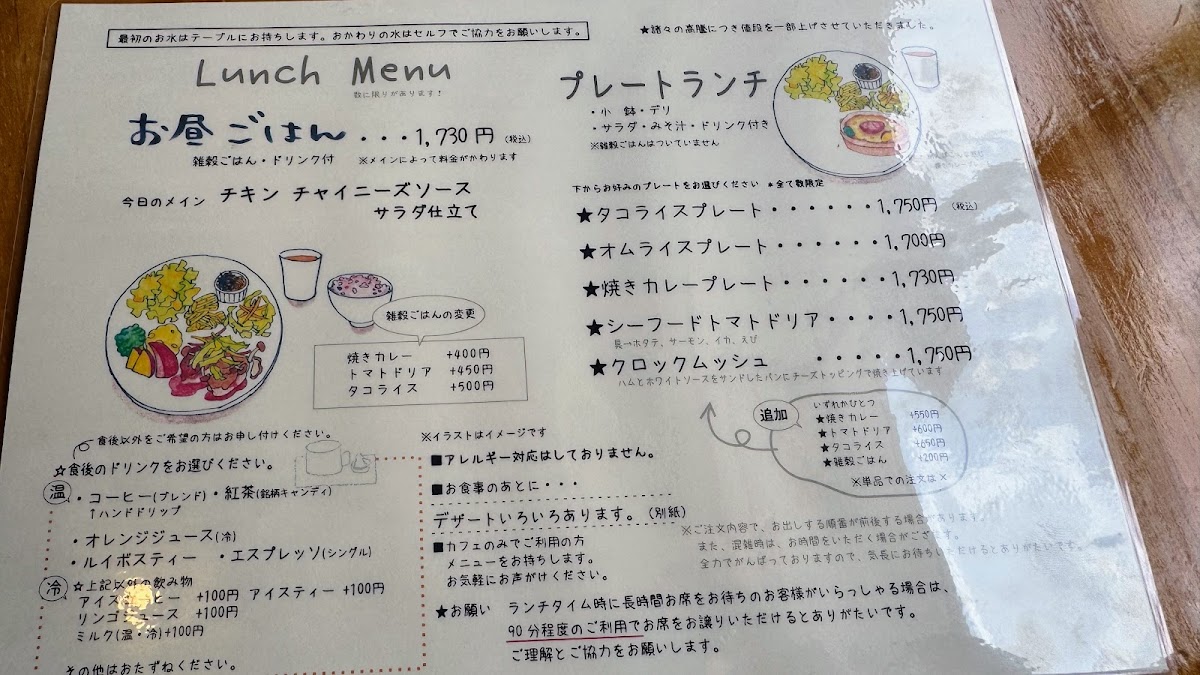 最初のお水はテーブルにお持ちします。おかわりの水はセルフでご協力をお願いします。
Lunch Menu
数に限りがあります！
お昼ごはん・・・1,730円(税込)
雑穀ごはん・ドリンク付 ※メインによって料金がかわります
今日のメイン チキン チャイニーズソース
サラダ仕立て
雑穀ごはんの変更
焼きカレー +400円
トマトドリア +450円
タコライス +500円
食後以外をご希望の方はお申し付けください。
☆食後のドリンクをお選びください。
温
・コーヒー(ブレンド)・紅茶(銘柄キャンディ)
↑ハンドドリップ
・オレンジジュース(冷)
・ルイボスティー ・エスプレッソ(シングル)
冷
☆上記以外の飲み物
アイスコーヒー +100円 アイスティー +100円
リンゴジュース +100円
ミルク(温・冷)+100円
その他はおたずねください。
※イラストはイメージです
■アレルギー対応はしておりません。
■お食事のあとに・・・
デザートいろいろあります。(別紙)
■カフェのみでご利用の方
メニューをお持ちします。
お気軽にお声がけください。
★お願い ランチタイム時に長時間お席をお待ちのお客様がいらっしゃる場合は、
90分程度のご利用でお席をお譲りいただけるとありがたいです。
ご理解とご協力をお願いします。
★諸々の高騰につき値段を一部上げさせていただきました。
プレートランチ
・小鉢・デリ
・サラダ・みそ汁・ドリンク付き
※雑穀ごはんはついていません
下からお好みのプレートをお選びください ＊全て数限定
★タコライスプレート・・・・・・1,750円(税込)
★オムライスプレート・・・・・・1,700円
★焼きカレープレート・・・・・1,730円
★シーフードトマトドリア・・・・1,750円
具→ホタテ、サーモン、イカ、えび
★クロックムッシュ ・・・・・1,750円
ハムとホワイトソースをサンドしたパンにチーズトッピングで焼き上げています
追加
いずれかひとつ
★焼きカレー +550円
★トマトドリア +600円
★タコライス +650円
★雑穀ごはん +200円
※単品での注文は×
※ご注文内容で、お出しする順番が前後する場合があります。
また、混雑時は、お時間をいただく場合がございます。
全力でがんばっておりますので、気長にお待ちいただけるとありがたいです。